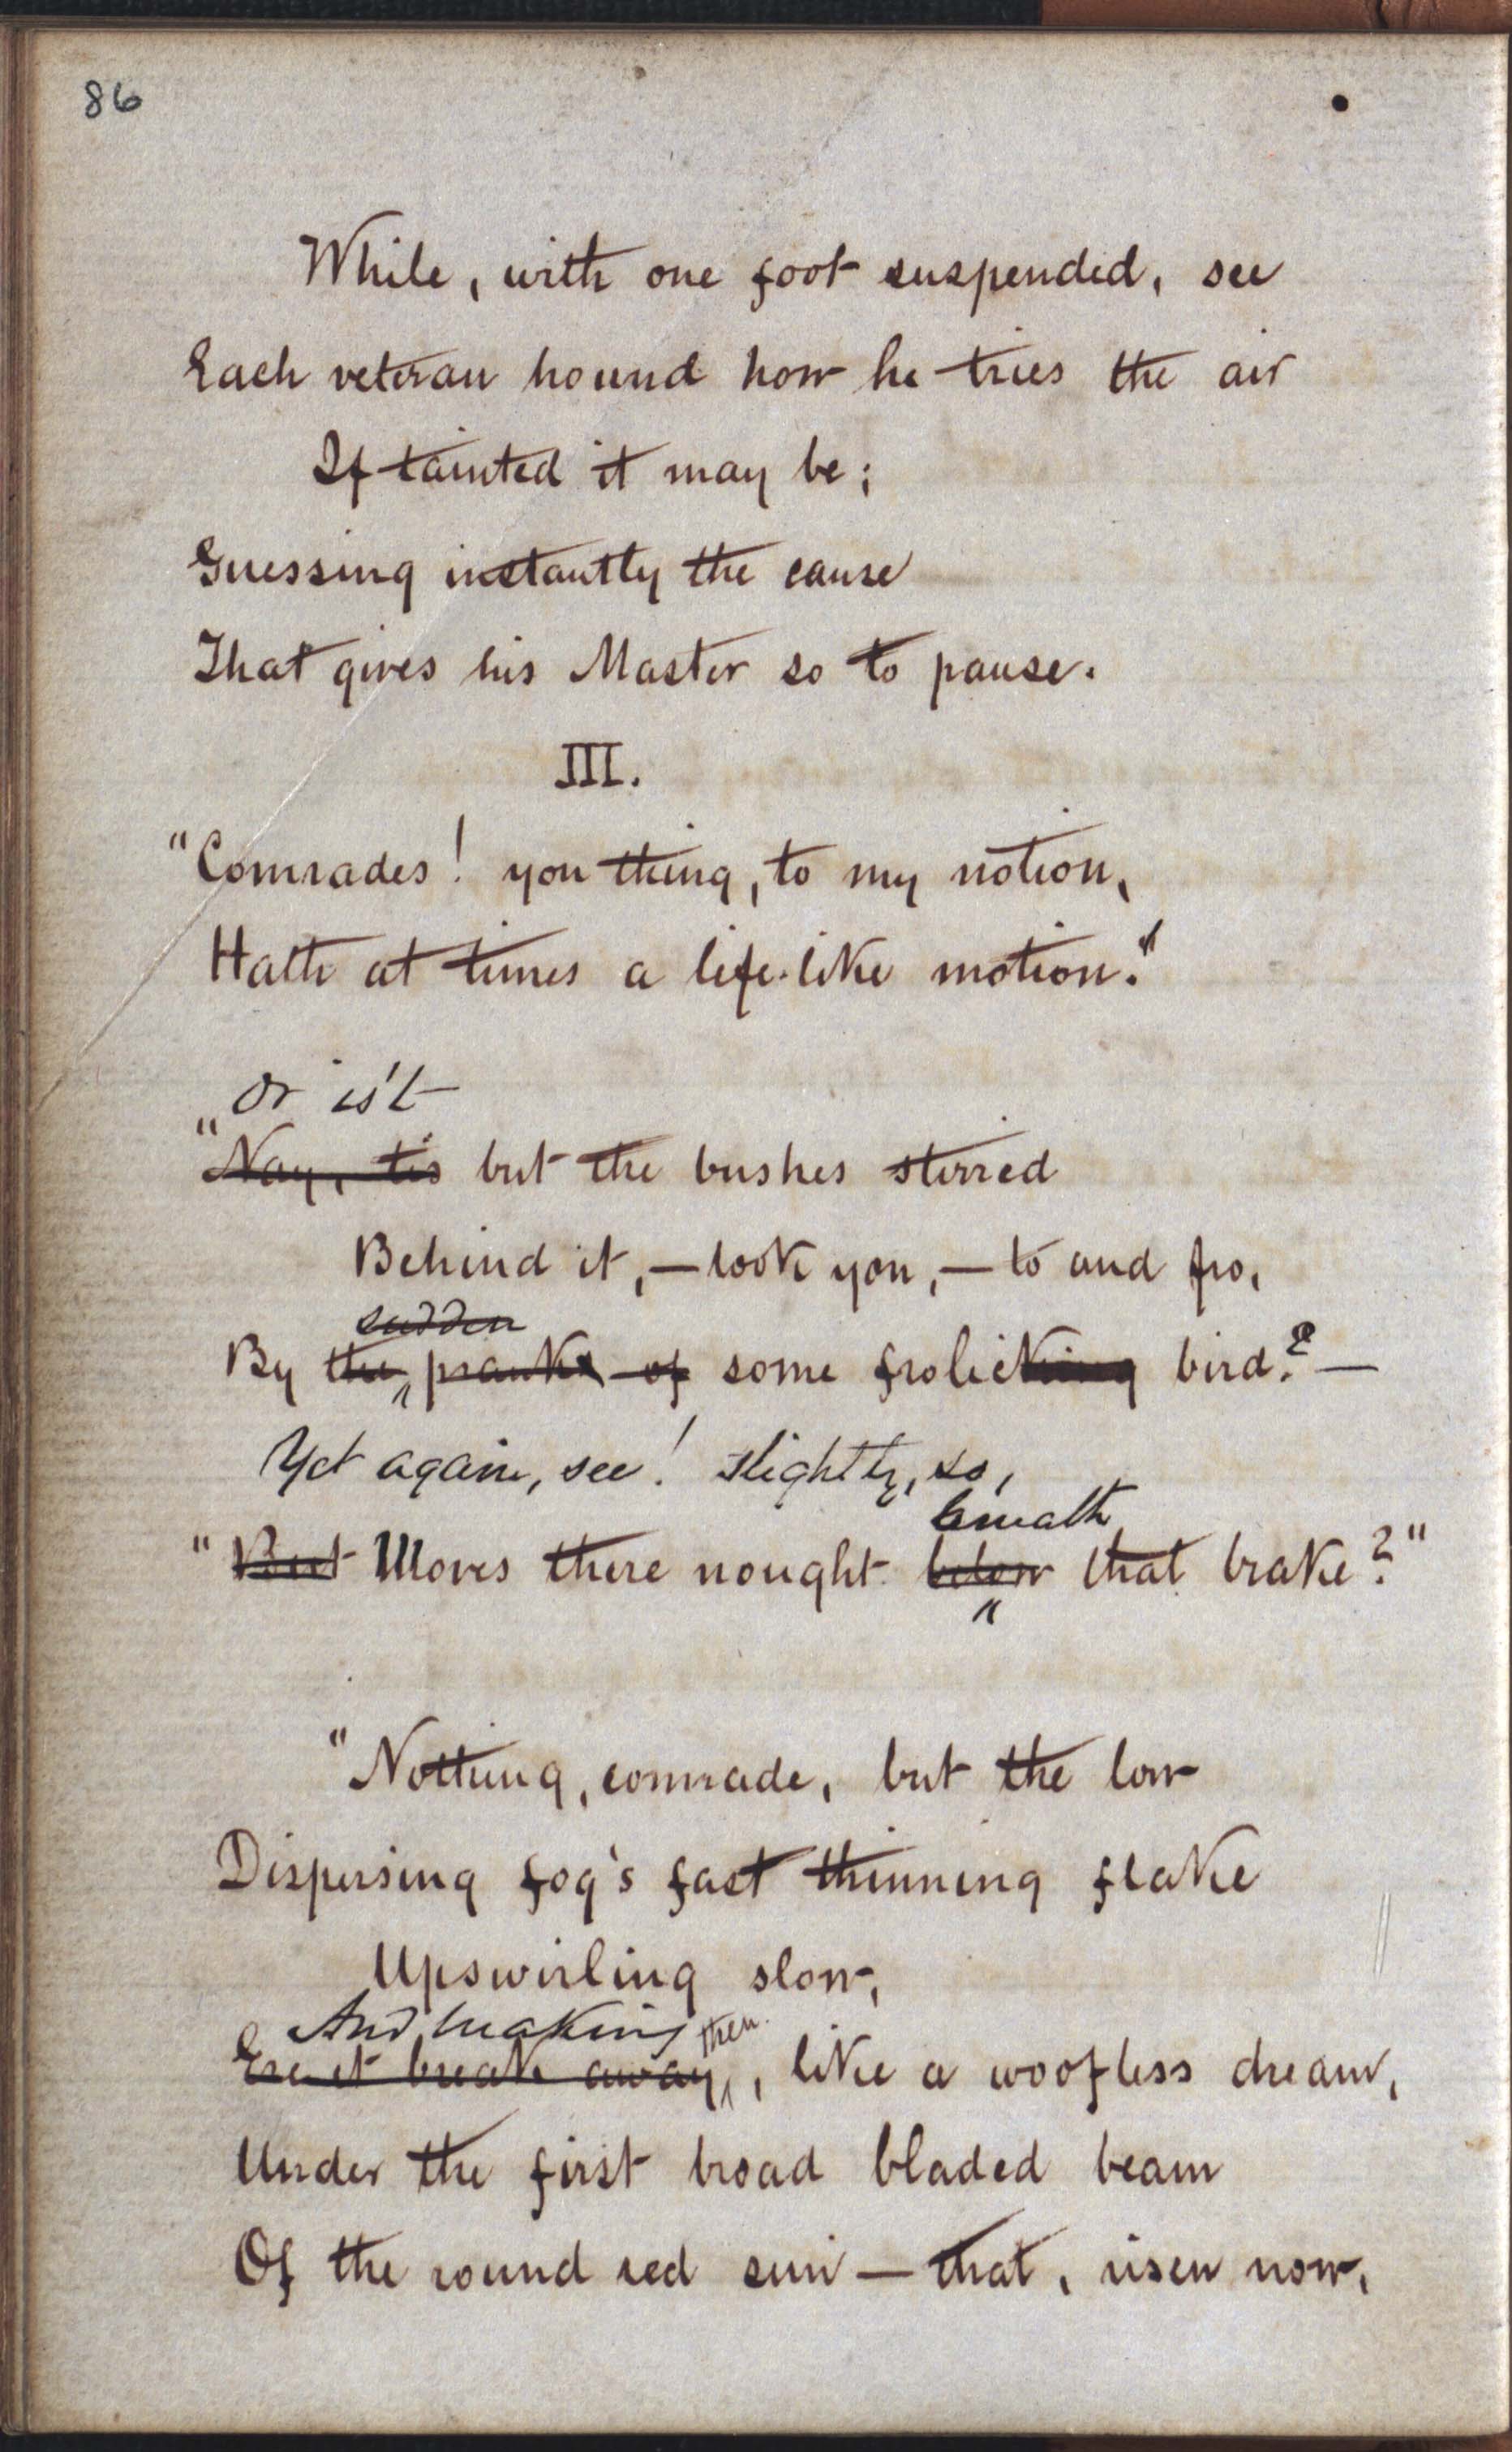 86
While, with one foot suspended, see
Each veteran hound how he tries the air
If tainted it may be;
Guessing instantly the cause
That gives his Master so to pause.
III.
"Comrades! yon thing, to my notion,
Hath at times a life-like motion."
Or is't
"Nay, tis but the bushes stirred
Behind it,—look you,—to and fro,
sudden
By the pranks of some frolicking bird?—
Yet again, see! slightly, so,
beneath
"But Moves there nought below that brake?"
"Nothing, comrade, but the low
Dispersing fog's fast thinning flake
Upswirling slow,
And breaking then
Ere it break away, like a woofless dream,
Under the first broad bladed beam
Of the round red sun—that, risen now,